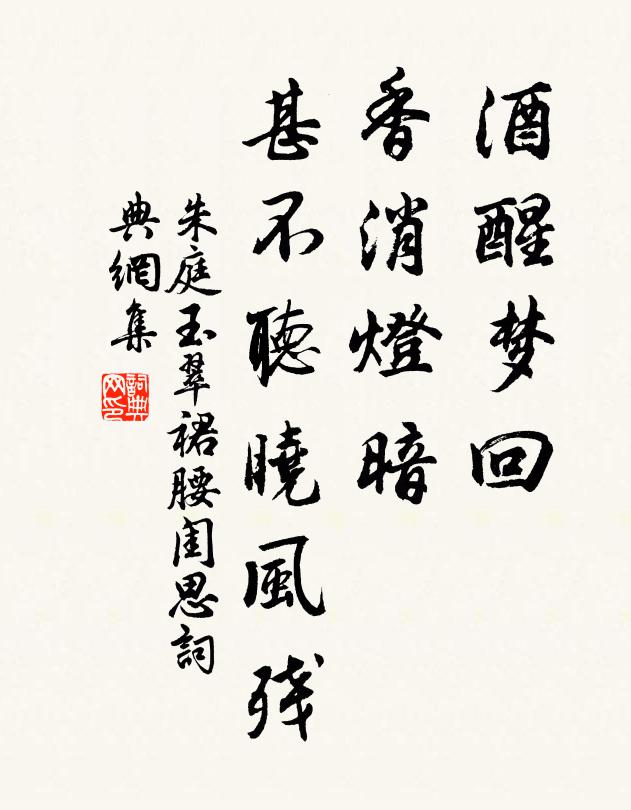 酒醒梦回
香消燈暗
甚不聽曉風殘
朱庭玉翠裙腰閨思詞
典網集
詞典
网印